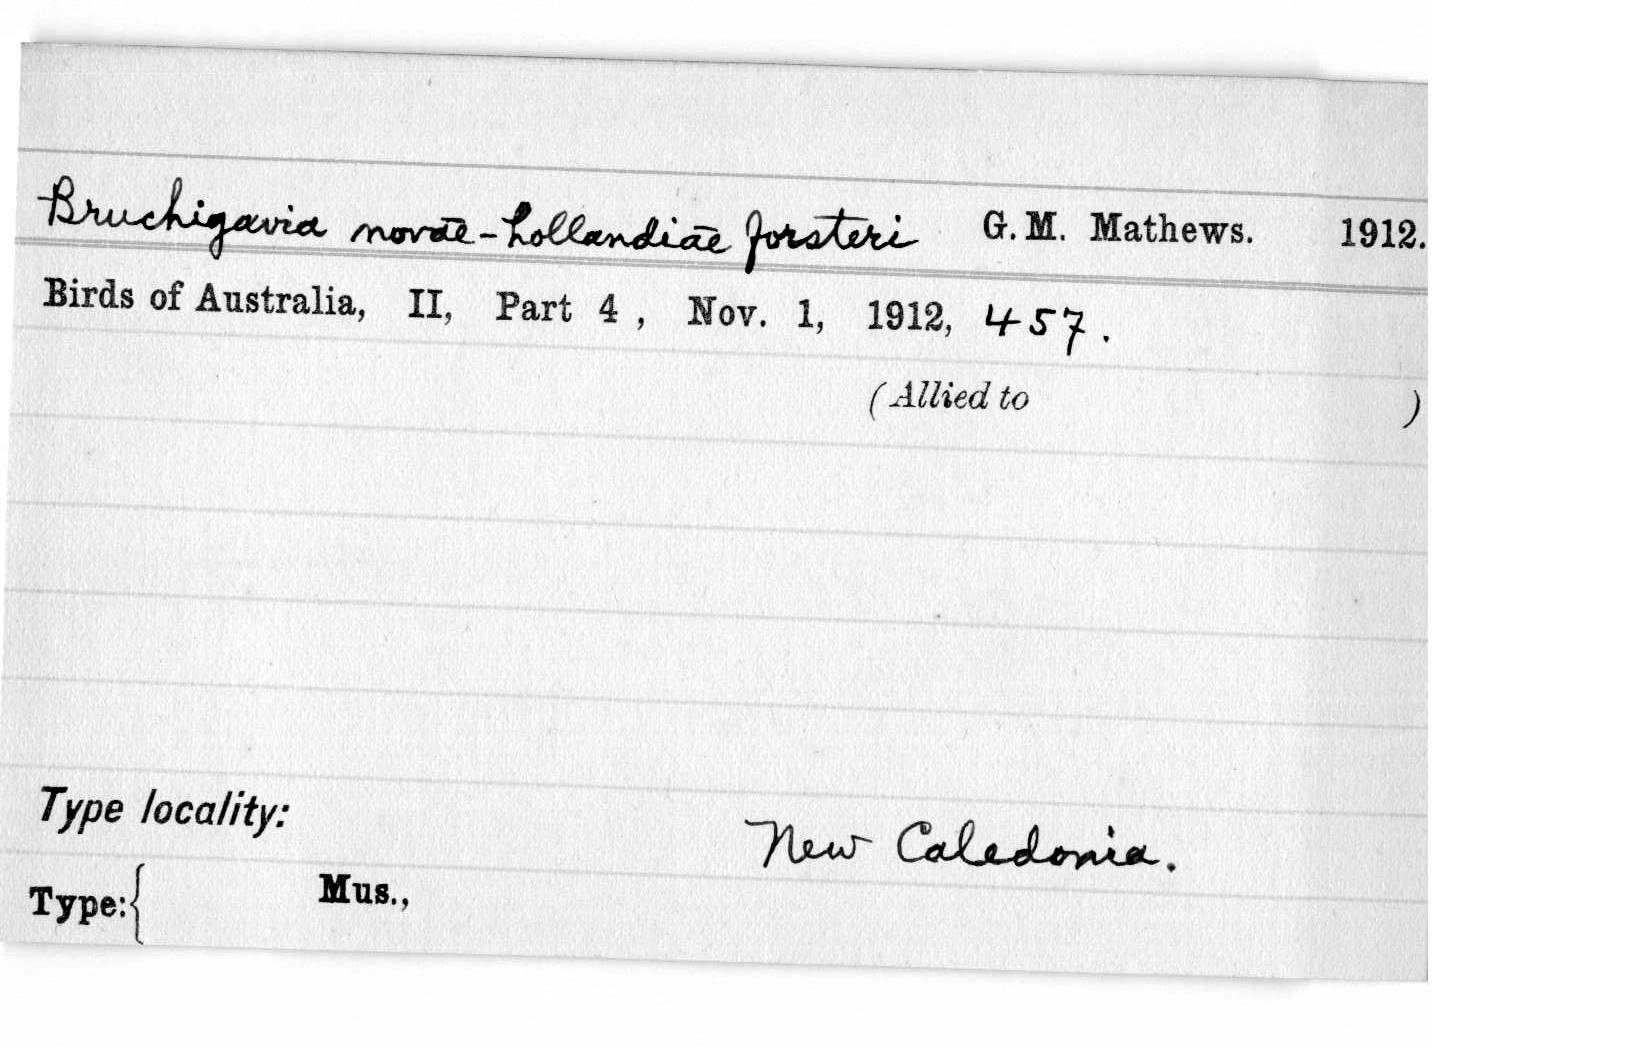 Bruchigavia novae-hollandiae forsteri G. M. Mathews. 1912.
Birds of Australia, II, Part 4 , Nov. 1, 1912, 457.
(Allied to )
Type locality:
New Caledonia.
Type:{ Mus.,